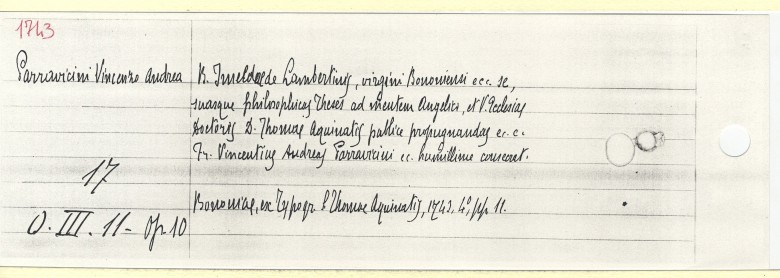 1743
Parravicini Vincenzo Andrea
B. Imeldae de Lambertinis, virgini Bononiensi ecc. se,
suasque philosophicas Theses ad mentem Angelici, et V. Ecclesiae
Doctoris D. Thomae Aquinatis publice propugnandas ec. c.
Fr. Vincentius Andreas Parravicini ec. humillime consecrat.
17
Bononiae, ex Typogr. S. Thomae Aquinatis, 1743. 4° pp. 11.
O. III. 11 - Op. 10